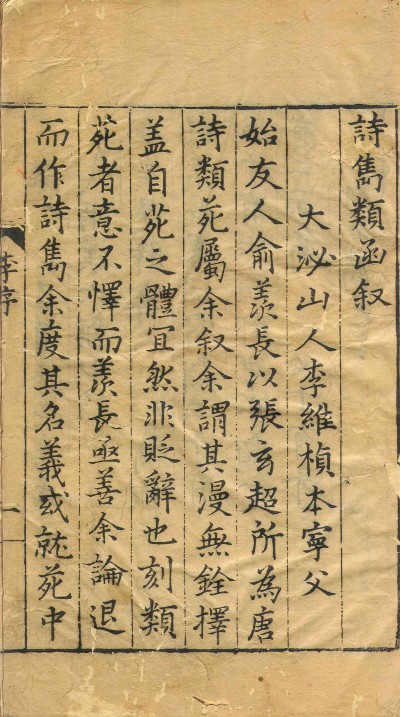 詩雋類函叙
大泌山人李維楨本寧父
始友人俞羨長以張玄超所為唐
詩類苑屬余叙余謂其漫無銓擇
盖自苑之體宜然非貶辭也刻類
苑者意不懌而羨長亟善余論退
而作詩雋余度其名義或就苑中
李序
一